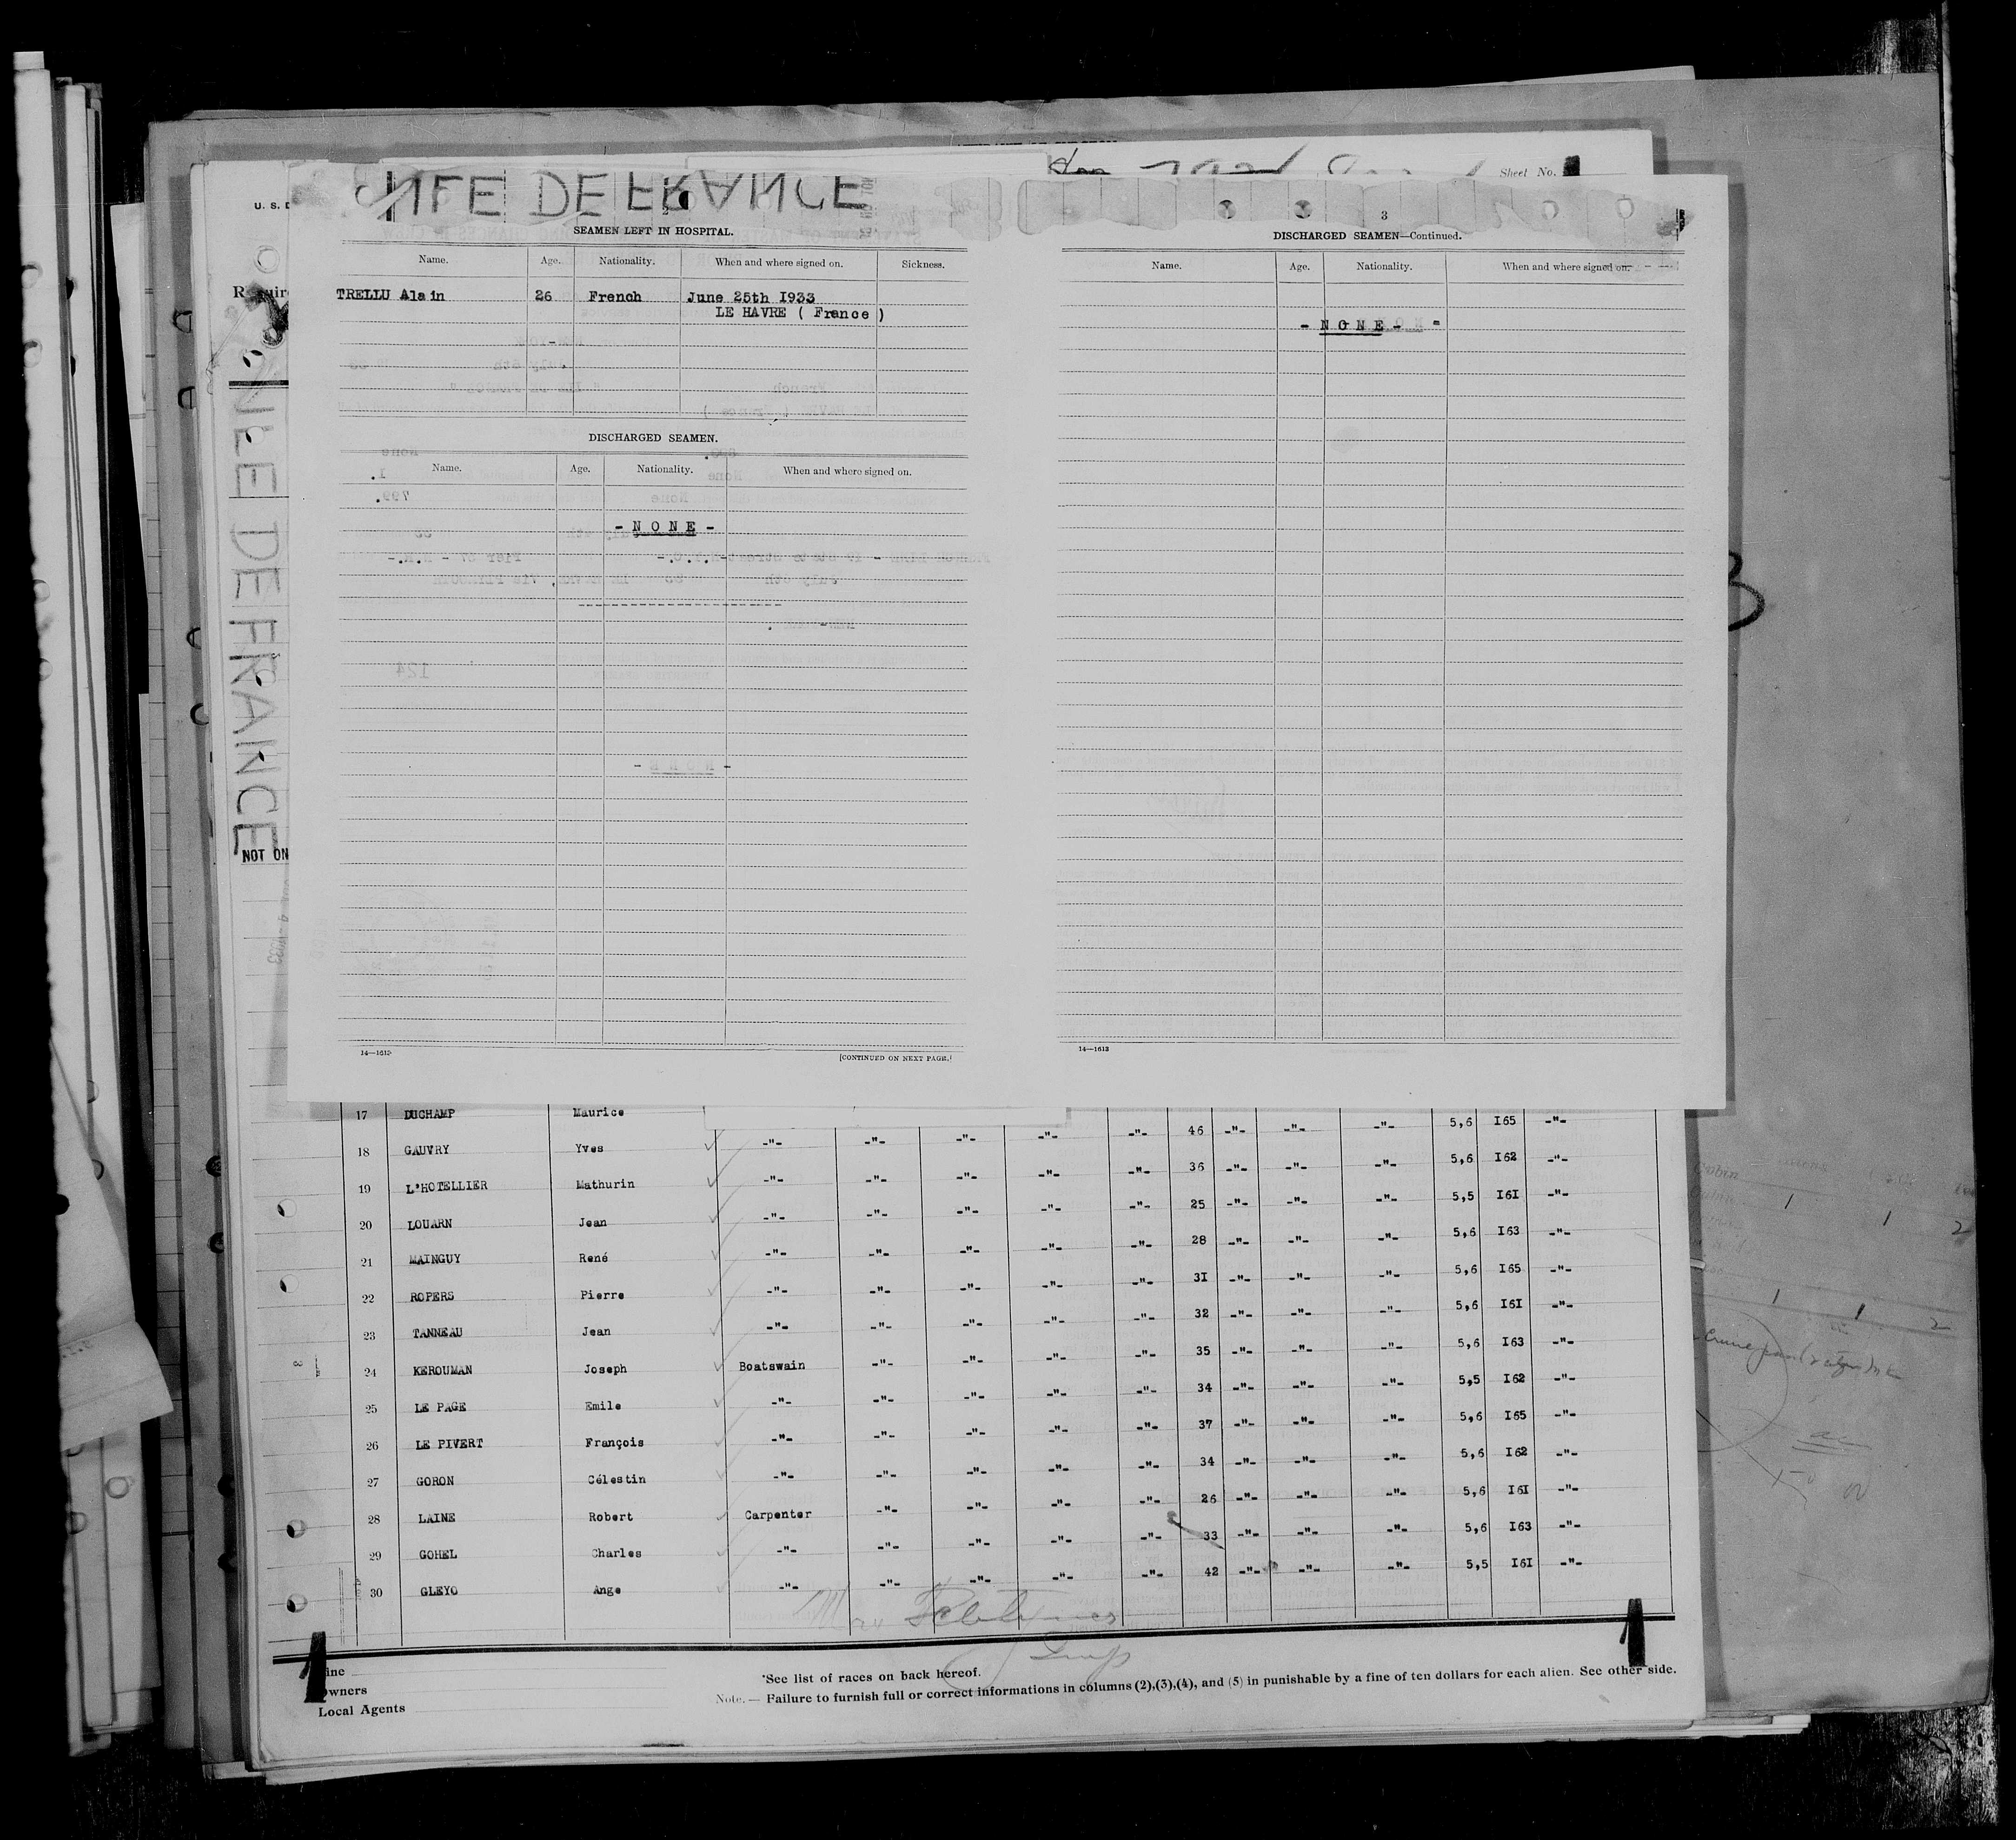 ILE DE FRANCE
Sheet No.
U. S. D
2
SEAMEN LEFT IN HOSPITAL.
Name. Age. Nationality. When and where signed on. Sickness.
TRELLU Alain 26 French June 25th I933
LE HAVRE ( France )
DISCHARGED SEAMEN.
Name. Age. Nationality. When and where signed on.
- N O N E -
14—1613
[CONTINUED ON NEXT PAGE.]
3
DISCHARGED SEAMEN—Continued.
Name. Age. Nationality. When and where signed on.
- N O N E -
14—1613
ILE DE FRANCE
NOT ON
17 DUCHAMP Maurice
18 GAUVRY Yves -"- -"- -"- -"- -"- 46 -"- -"- -"- 5,6 I65 -"-
19 L'HOTELLIER Mathurin -"- -"- -"- -"- -"- 36 -"- -"- -"- 5,6 I62 -"-
20 LOUARN Jean -"- -"- -"- -"- -"- 25 -"- -"- -"- 5,5 I6I -"-
21 MAINGUY René -"- -"- -"- -"- -"- 28 -"- -"- -"- 5,6 I63 -"-
22 ROPERS Pierre -"- -"- -"- -"- -"- 3I -"- -"- -"- 5,6 I65 -"-
23 TANNEAU Jean -"- -"- -"- -"- -"- 32 -"- -"- -"- 5,6 I6I -"-
24 KEROUMAN Joseph Boatswain -"- -"- -"- -"- 35 -"- -"- -"- 5,6 I63 -"-
25 LE PAGE Emile -"- -"- -"- -"- -"- 34 -"- -"- -"- 5,5 I62 -"-
26 LE PIVERT François -"- -"- -"- -"- -"- 37 -"- -"- -"- 5,6 I65 -"-
27 GORON Célestin -"- -"- -"- -"- -"- 34 -"- -"- -"- 5,6 I62 -"-
28 LAINE Robert Carpenter -"- -"- -"- -"- 26 -"- -"- -"- 5,6 I6I -"-
29 GOHEL Charles -"- -"- -"- -"- -"- 33 -"- -"- -"- 5,6 I63 -"-
30 GLEYO Ange -"- -"- -"- -"- -"- 42 -"- -"- -"- 5,5 I6I -"-
Line
Owners
Local Agents
*See list of races on back hereof.
Note.— Failure to furnish full or correct informations in columns (2),(3),(4), and (5) in punishable by a fine of ten dollars for each alien. See other side.